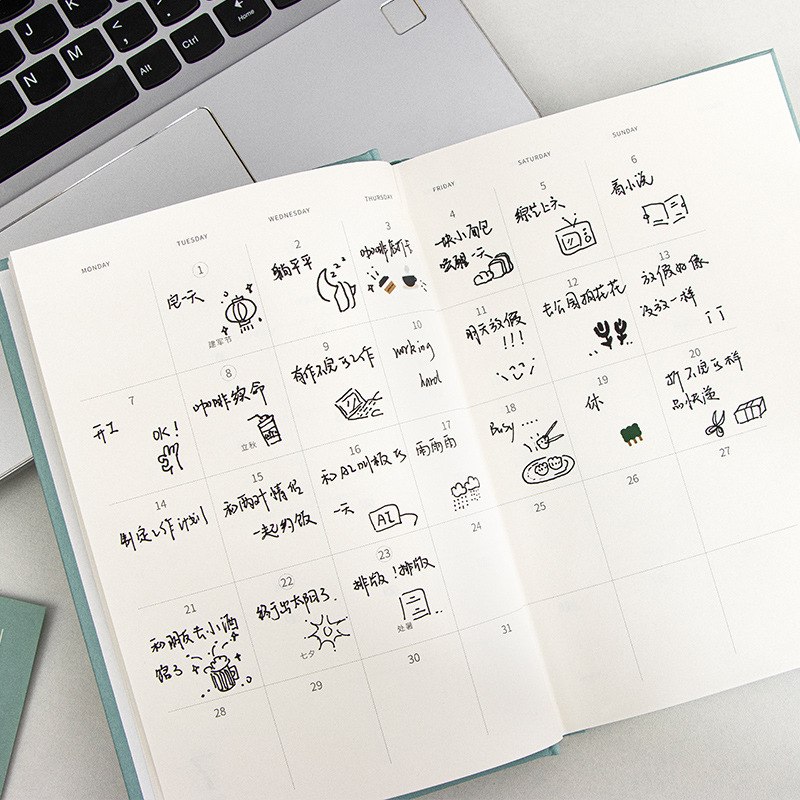 J
K
L
<
,
>
.
?
/
N
M
Alt
Ctrl
Home
MONDAY
TUESDAY
WEDNESDAY
THURSDAY
FRIDAY
SATURDAY
SUNDAY
1
宅一天
建军节
2
躺平平
zzz
3
咖啡
4
一块小面包
唤醒一天
5
综艺上头
6
看小说
7
开工
OK!
8
咖啡续命
立秋
9
有作不完的工作
10
working
hard
11
明天放假
!!!
12
去公园拍花花
13
放假如像
没放一样
14
制定工作计划
15
和两对情侣
一起约饭
16
和AI叫板的
一天
AI
17
雨雨雨
18
Busy ....
19
休
20
拆不完的样
品快递
21
和朋友去小酒
馆了
22
终于出太阳了.
七夕
23
排版!排版
处暑
24
25
26
27
28
29
30
31